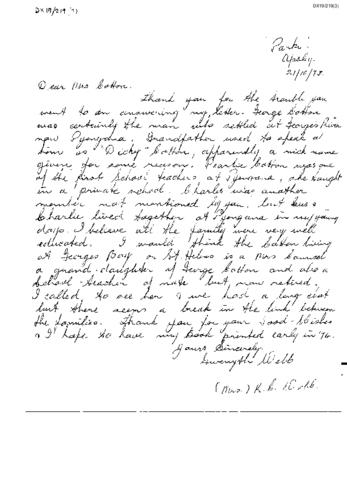 DX19/219(1)
DX19/219(3)
'Parks'
Apsley.
21/10/75.
Dear Mrs Cotton.
Thank you for the trouble you
went to on answering my letter. George Cotton
was certainly the man who settled at Georges River
now Pyengana. Grandfather used to speak of
him as "Dicky" Cotton, apparently a nick name
given for some reason. Pearlie Cotton was one
of the first School Teachers at Pyengana, she taught
in a private school. Charlie was another
member not mentioned by you. but
Charlie lived together at Pyengana in my young
days. I believe all the family were very well
educated. I would think the Cotton living
at Georges Bay or St Helens is a Mrs
a grand-daughter of George Cotton and also a
School-teacher of note but now retired.
I called to see her & we had a long chat
but there seems a break in the link between
the families. Thank you for your Good-Wishes
& I hope to have my Book printed early in '76.
Yours Sincerely.
Gwenyth Webb
(Mrs.) R. C. Webb.